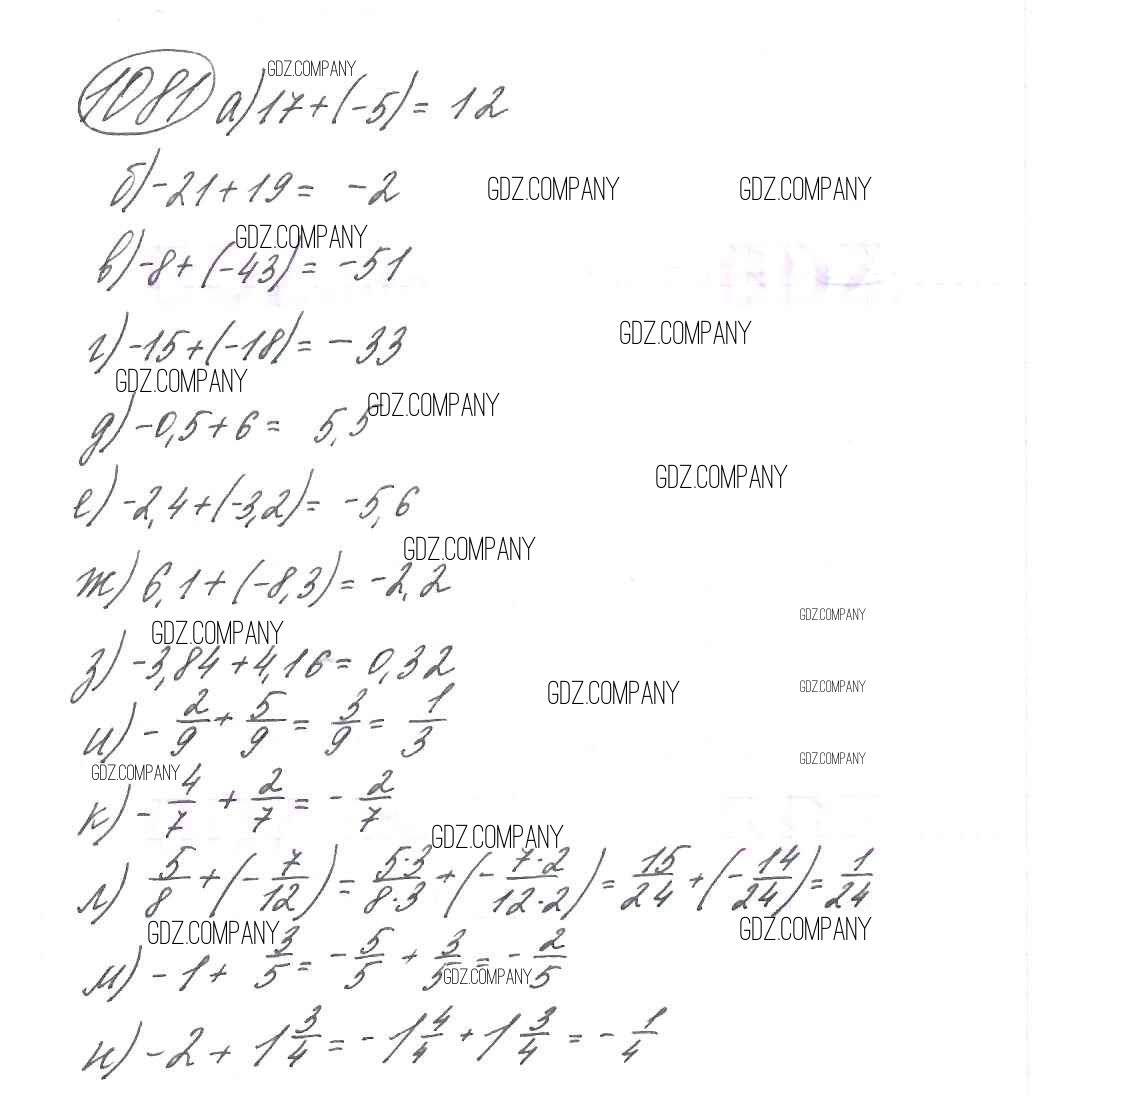 GDZ.COMPANY
1081 а) 17 + (-5) = 12
б) -21 + 19 = -2
GDZ.COMPANY GDZ.COMPANY
GDZ.COMPANY
в) -8 + (-43) = -51
г) -15 + (-18) = -33
GDZ.COMPANY
GDZ.COMPANY
GDZ.COMPANY
д) -0,5 + 6 = 5,5
е) -2,4 + (-3,2) = -5,6
GDZ.COMPANY
GDZ.COMPANY
ж) 6,1 + (-8,3) = -2,2
GDZ.COMPANY
GDZ.COMPANY
з) -3,84 + 4,16 = 0,32
GDZ.COMPANY
GDZ.COMPANY
и) -2/9 + 5/9 = 3/9 = 1/3
GDZ.COMPANY
GDZ.COMPANY
к) -4/7 + 2/7 = -2/7
GDZ.COMPANY
л) 5/8 + (-7/12) = 5·3/8·3 + (-7·2/12·2) = 15/24 + (-14/24) = 1/24
GDZ.COMPANY GDZ.COMPANY
м) -1 + 3/5 = -5/5 + 3/5 = -2/5
GDZ.COMPANY
н) -2 + 1 3/4 = -1 4/4 + 1 3/4 = -1/4